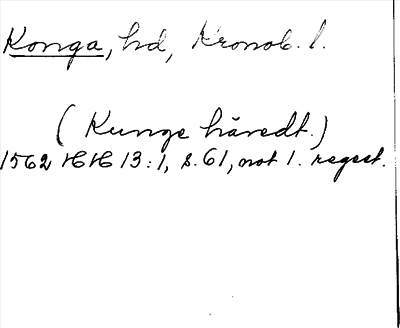 Konga, hd, Kronob. l.
(Kunge häredt.)
1562 HH 13:1, s. 61, not 1. regest.